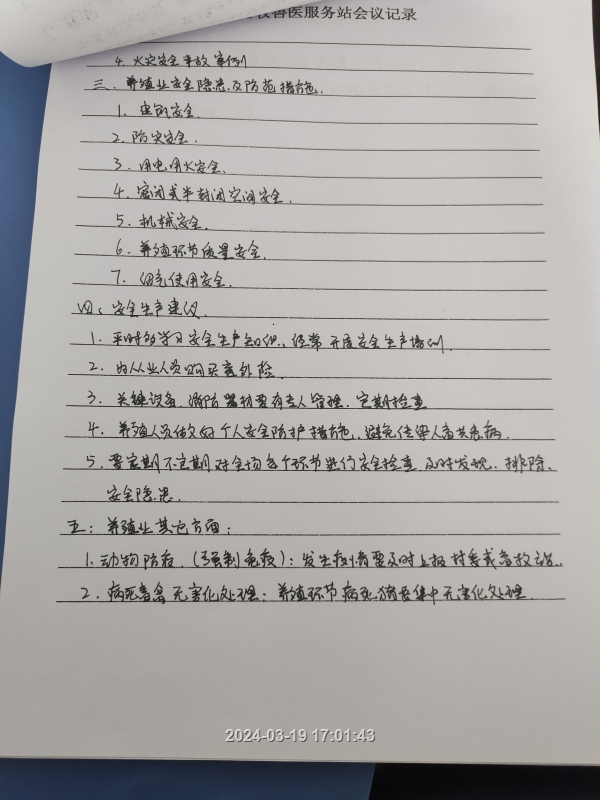 牧兽医服务站会议记录
4. 火灾安全事故案例
三、养殖业安全隐患及防范措施.
1. 建制安全.
2. 防灾安全.
3. 用电用火安全.
4. 密闭或半封闭空间安全.
5. 机械安全.
6. 养殖环节质量安全.
7. 使用安全.
四、安全生产建议.
1. 平时多学习安全生产知识,经常开展安全生产培训.
2. 为从业人员购买意外险.
3. 关键设备、消防器材要有专人管理、定期检查
4. 养殖人员做好个人安全防护措施,避免传染人畜共患病.
5. 要定期不定期对全场各个环节进行安全检查,及时发现、排除、
安全隐患.
五:养殖业其它方面:
1. 动物防疫.(强制免疫):发生疫情要及时上报村委或畜牧站..
2. 病死畜禽无害化处理:养殖环节病死猪要集中无害化处理.
2024-03-19 17:01:43